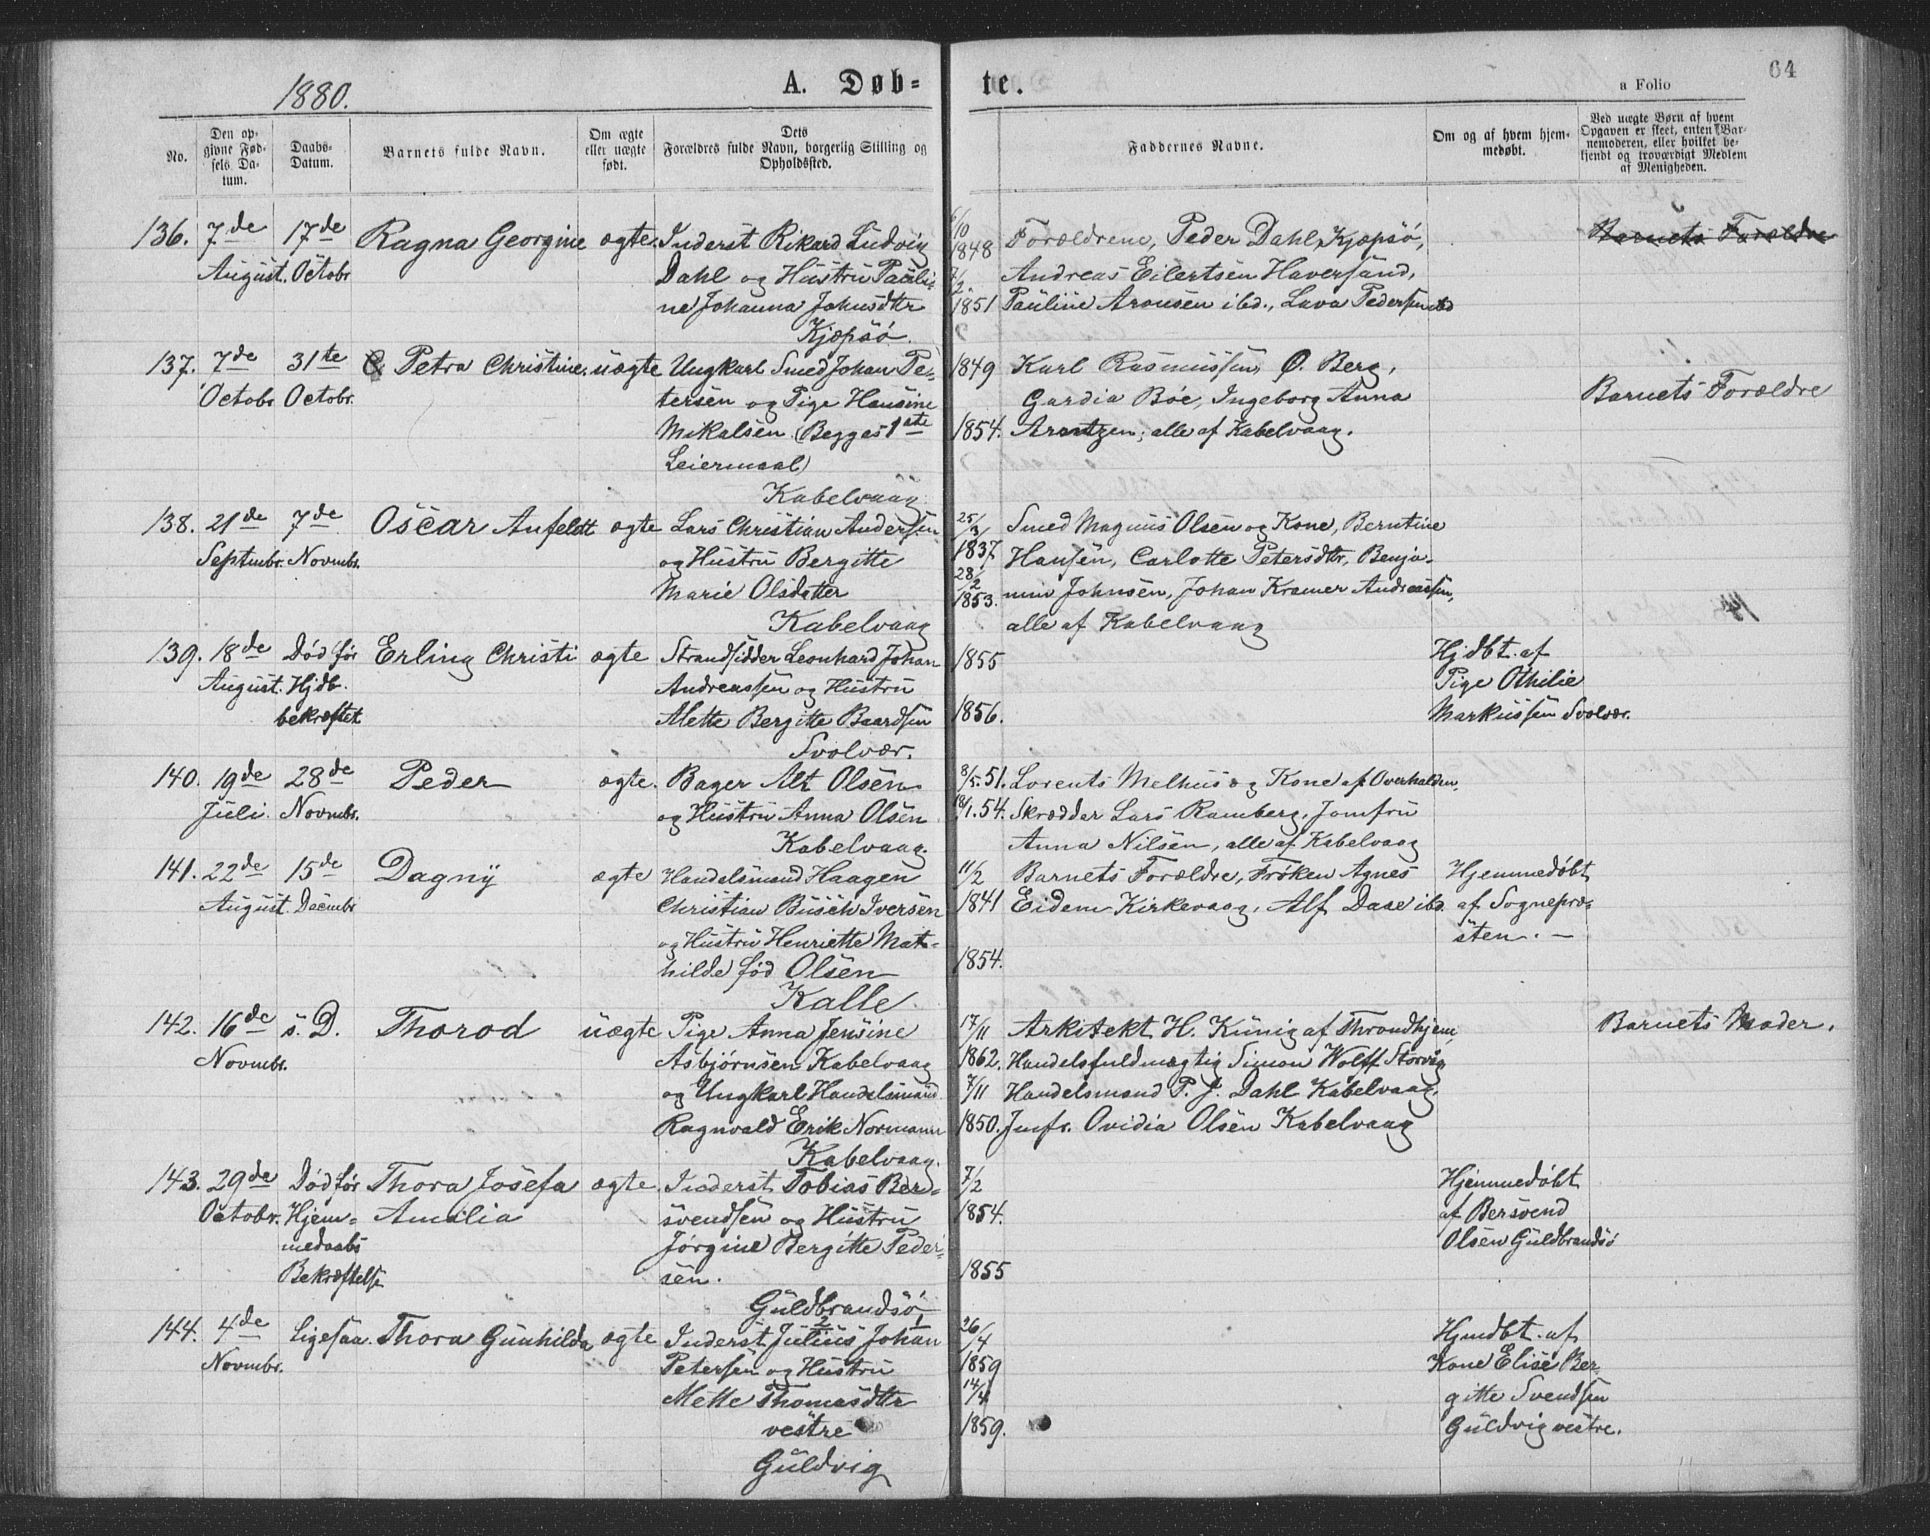 1880.
A. Døb-
te.
a Folio
64
No.
Den op-
givne Fød-
sels Da-
tum.
Daabs-
Datum.
Barnets fulde Navn.
Om ægte
eller uægte
født.
Dets
Forældres fulde Navn, borgerlig Stilling og
Opholdssted.
Faddernes Navne.
Om og af hvem hjem-
medøbt.
Ved uægte Børn af hvem
Opgaven er skeet, enten Bar-
nemoderen, eller hvilket be-
kjendt og troværdigt Medlem
af Menigheden.
136. 7de 17de Ragna Georgine ægte. Inderst Rikard Ludvig
August. Octobr Dahl og Hustru Pauli-
ne Johanna Johnsdtr
Kjæpsö.
6/10 1848
7/2. 1851
Forældrene, Peder Dahl, Kjæpsö,
Andreas Eilertsen Haversand,
Pauline Aronsen ibd., Lava Pedersen ibd
Barnets Forældre
137. 7de 31te Petra Christine. uægte Ungkarl Smed Johan Pe-
Octobr Octobr. tersen og Pige Hansine
Mikalsen (Begges 1ste
Leiermaal)
Kabelvaag
1849 Karl Rasmussen, Ø. Berg,
Gardia Böe, Ingeborg Anna
1854. Arntzen, alle af Kabelvaag.
Barnets Forældre
138. 21de 7de Oscar Anfeldt ægte Lars Christian Andersen
Septmbr. Novmbr. og Hustru Bergitte
Marie Olsdatter
Kabelvaag
25/3 1837
28/2 1853.
Smed Magnus Olsen og Kone, Berntine
Hansen, Carlotte Petersdtr, Benja-
min Johnsen, Johan Kramer Andreassen,
alle af Kabelvaag
139. 18de Död för Erling Christi ægte Strandsidder Leonhard Johan
August. Hjdb. Andreassen og Hustru
bekræftet Alette Bergitte Baardsen
Svolvær.
1855
1856.
Hjdbt. af
Pige Othilie
Markussen Svolvær.
140. 19de 28de Peder ægte. Bager Alt Olsen
Juli. Novmbr. og Hustru Anna Olsen
Kabelvaag.
8/5. 51. Lorents Melhus og Kone af Overhalden,
18/1. 54. Skrædder Lars Ramberg, Jomfru
Anna Nilsen, alle af Kabelvaag
141. 22de 15de Dagny ægte Handelsmand Haagen
August. Decmbr Christian Busch Iversen
og Hustru Henriette Mat-
hilde föd Olsen
Kalle.
11/2 Barnets Forældre, Fröken Agnes
1841 Eidem Kirkevaag, Alf Dase ibd.
1854.
Hjemmedöbt
af Sognepræ-
sten. —
142. 16de s. D. Thorod uægte Pige Anna Jensine
Novmbr. Asbjørnsen Kabelvaag
og Ungkarl Handelsmand
Ragnvald Erik Normann
Kabelvaag.
17/11 Arkitekt H. Künig af Throndhjem,
1862. Handelsfuldmægtig Simon Wolff Storvåg
7/11 Handelsmand P. J. Dahl Kabelvaag,
1850. Jmfr. Ovidia Olsen Kabelvaag
Barnets Moder.
143. 29de Död för Thora Josefa ægte. Inderst Tobias Ber-
Octobr. Hjem- Amalia svendsen og Hustru
medaabs Jörgine Bergitte Peder-
Bekræftelse sen.
Guldbrandsö
7/2
1854.
1855
Hjemmedöbt
af Bersvend
Olsen Guldbrandsö
144. 4de Ligesaa. Thora Gunhilda ægte Inderst Julius Johan
Novmbr. Petersen og Hustru
Mette Thomasdtr
vestre
Guldvig
26/4
1859
14/4
1859.
Hjmdbt. af
Kone Elise Ber
gitte Svendsen
Guldvig vestre.